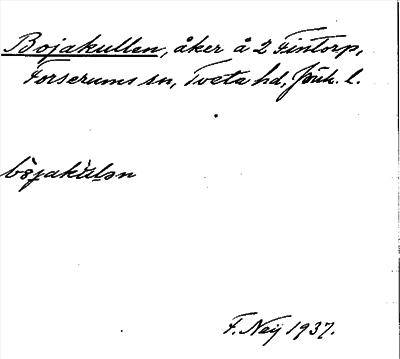 Bojakullen, åker å 2 Fintorp,
Forserums sn, Tveta hd, Jönk. l.
F. Neij 1937.